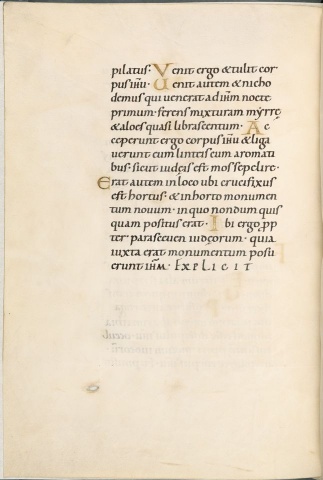 pilatus· Venit ergo &tulit cor
pus ihu· Uenit autem & nicho
demus qui venerat ad ihm nocte
primum· ferens mixturam myrrę
& aloes quasi libras centum· Ac
ceperunt ergo corpus ihu & liga
uerunt eum linteis cum aromati
bus· sicut iudęis est mos sepelire·
Erat autem in loco ubi crucifixus
est hortus· & in horto monumen
tum nouum· in quo nondum quis
quam positus erat· Ibi ergo pp
ter parasceuen iudęorum· quia
iuxta erat monumentum posu
erunt ihm· EXPLICIT